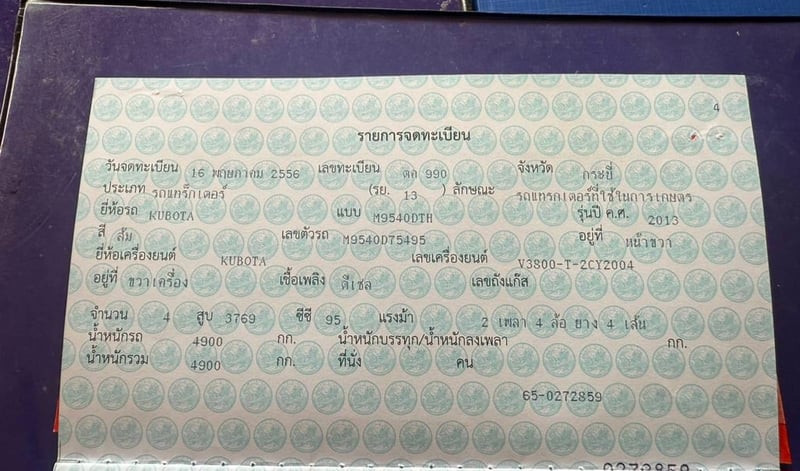 4
รายการจดทะเบียน
วันจดทะเบียน 16 พฤษภาคม 2556 เลขทะเบียน ตค 990 จังหวัด กระบี่
ประเภท รถแทร็กเตอร์ (รย. 13 ) ลักษณะ รถแทรกเตอร์ที่ใช้ในการเกษตร
ยี่ห้อรถ KUBOTA แบบ M9540DTH รุ่นปี ค.ศ. 2013
สี ส้ม เลขตัวรถ M9540D75495 อยู่ที่ หน้าขวา
ยี่ห้อเครื่องยนต์ KUBOTA เลขเครื่องยนต์ V3800-T-2CY2004
อยู่ที่ ขวาเครื่อง เชื้อเพลิง ดีเซล เลขถังแก๊ส
จำนวน 4 สูบ 3769 ซีซี 95 แรงม้า 2 เพลา 4 ล้อ ยาง 4 เส้น
น้ำหนักรถ 4900 กก. น้ำหนักบรรทุก/น้ำหนักลงเพลา กก.
น้ำหนักรวม 4900 กก. ที่นั่ง คน
65-0272859
0272859